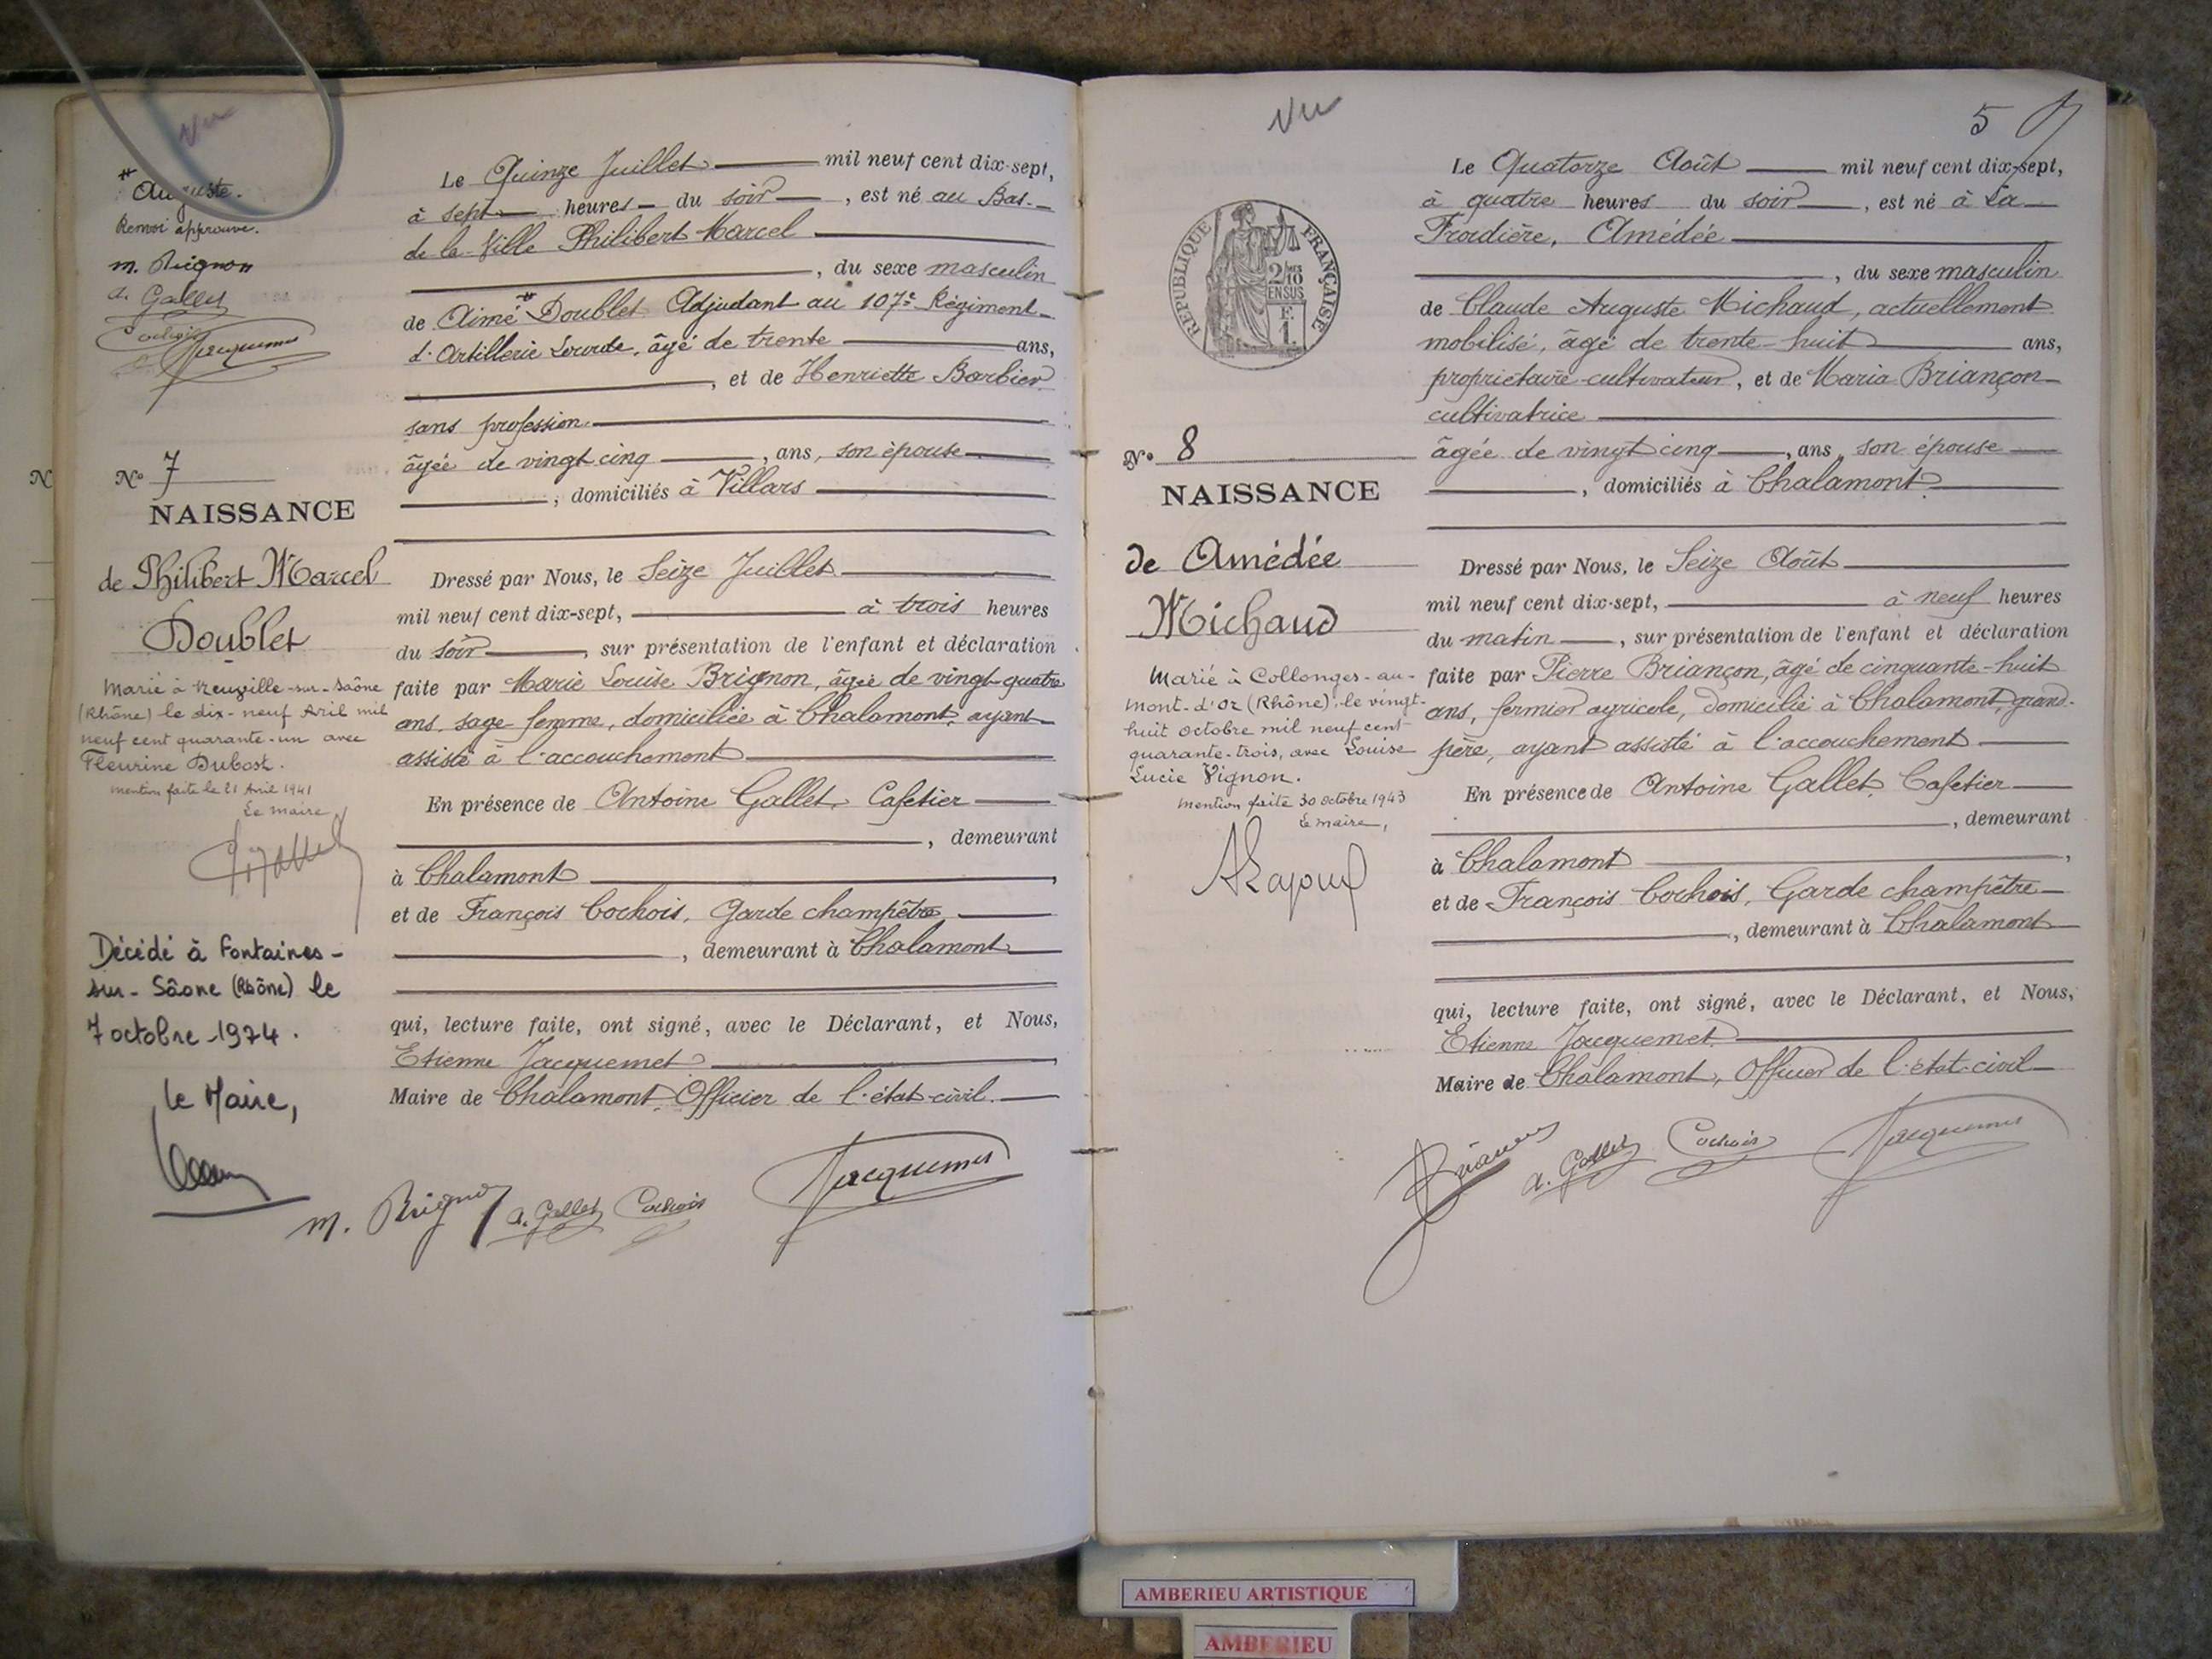 Vu
* Auguste.
Renvoi approuvé.
M. Brignon
A. Gallet
Cochois
Jacquemet
N° 7
NAISSANCE
de Philibert Marcel
Doublet
Marié à Neuville-sur-Saône
(Rhône) le dix-neuf Avril mil
neuf cent quarante-un avec
Fleurine Dubost.
Mention faite le 21 Avril 1941
Le Maire
Décédé à Fontaines-
sur-Sâone (Rhône) le
7 octobre 1974.
Le Maire,
Le Quinze Juillet mil neuf cent dix-sept,
à sept heures du soir, est né au Bas-
de la Ville Philibert Marcel
, du sexe masculin
de Aimé * Doublet Adjudant au 107e Régiment
d'Artillerie Lourde, âgé de trente ans,
, et de Henriette Barbier
sans profession
âgée de vingt cinq, ans, son épouse
, domiciliés à Villars
Dressé par Nous, le Seize Juillet
mil neuf cent dix-sept, à trois heures
du soir, sur présentation de l'enfant et déclaration
faite par Marie Louise Brignon, âgée de vingt-quatre
ans, sage femme, domiciliée à Chalamont, ayant
assisté à l'accouchement
En présence de Antoine Gallet, Cafetier
, demeurant
à Chalamont
et de François Cochois, Garde champêtre
, demeurant à Chalamont
qui, lecture faite, ont signé, avec le Déclarant, et Nous,
Etienne Jacquemet
Maire de Chalamont, Officier de l'état-civil.
M. Brignon A. Gallet Cochois Jacquemet
Vu
5
RÉPUBLIQUE FRANÇAISE
2/10
EN SUS
F.
1.
N° 8
NAISSANCE
de Amédée
Michaud
Marié à Collonges-au-
Mont-d'Or (Rhône), le vingt-
huit octobre mil neuf cent
quarante-trois, avec Louise
Lucie Vignon.
Mention faite 30 octobre 1943
Le Maire,
Le Quatorze Août mil neuf cent dix-sept,
à quatre heures du soir, est né à La
Frordière, Amédée
, du sexe masculin
de Claude Auguste Michaud, actuellement
mobilisé, âgé de trente-huit ans,
propriétaire-cultivateur, et de Maria Briançon
cultivatrice
âgée de vingt cinq, ans, son épouse
, domiciliés à Chalamont
Dressé par Nous, le Seize Août
mil neuf cent dix-sept, à neuf heures
du matin, sur présentation de l'enfant et déclaration
faite par Pierre Briançon, âgé de cinquante-huit
ans, fermier agricole, domicilié à Chalamont, grand-
père, ayant assisté à l'accouchement
En présence de Antoine Gallet, Cafetier
, demeurant
à Chalamont,
et de François Cochois, Garde champêtre
, demeurant à Chalamont
qui, lecture faite, ont signé, avec le Déclarant, et Nous,
Etienne Jacquemet
Maire de Chalamont, Officier de l'état-civil
Briançon A. Gallet Cochois Jacquemet
AMBERIEU ARTISTIQUE
AMBERIEU